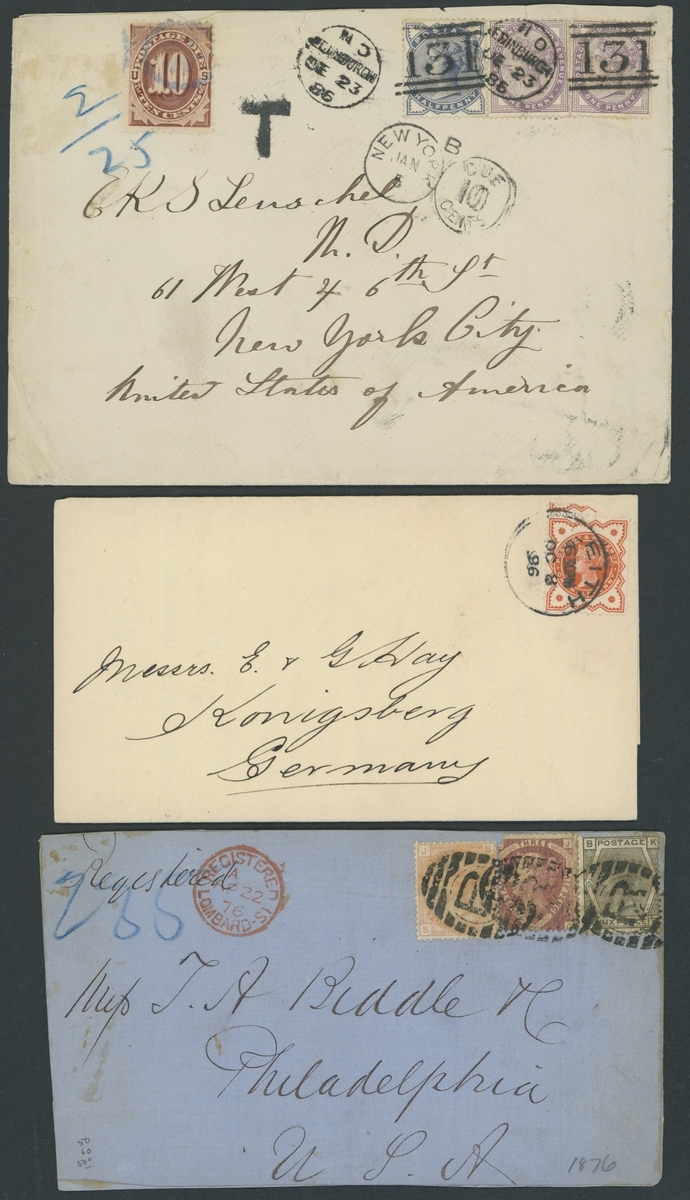 POSTAGE DUE
10
TEN CENTS
2/25
T
NO
EDINBURGH
DE 23
86
131
NO
EDINBURGH
DE 23
86
131
HALFPENNY
ONE PENNY
ONE PENNY
B
NEW YORK
JAN
DUE
10
CENTS
61 West 46th St
M. D.
New York City.
United States of America
LEITH
OC 8
86
Messrs. E. & G. Hay
Konigsberg
Germany
Registered
REGISTERED
A
22
76
LOMBARD. ST
THREE
J
B POSTAGE K
SIX PENCE
T. A Biddle & Co
Philadelphia
U. S. A
1876